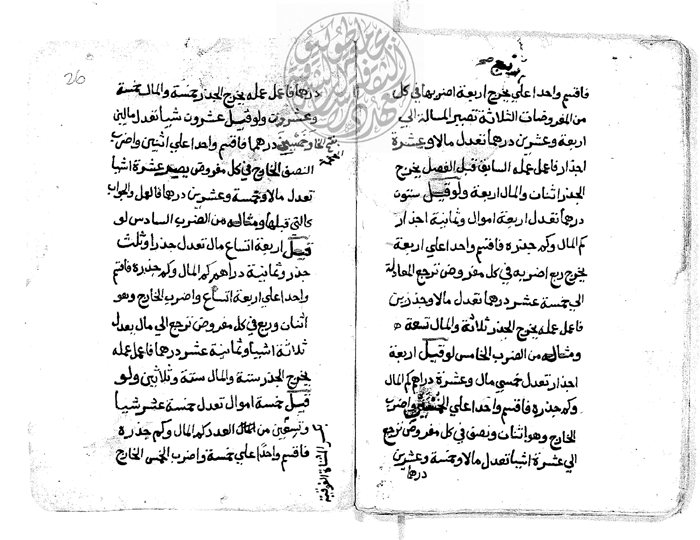 فاقسم واحدا على يخرج اربعة اضربها في كل
من المفروضات الثلاثة تصير المسالة الي
اربعة وعشرين درها تعدل مالا وعشرة
اجذار فاعمل عمله السابق قبل الفصل يخرج
الجذر اثنات والمال اربعة ولو قيل ستون
درها تعدل اربعة اموال وثمانية اجذار
كم المال وكم جذره فاقسم واحدا علي اربعة
يخرج ربع اضربه في كل مفروض ترجع المعادلة
الي خمسة عشر درها تعدل مالا وجذرين
فاعمل عمله يخرج الجذر ثلاثة والمال تسعة ه
ومثاله من الضرب الخامس لو قيل اربعة
اجذار تعدل خمسي مال وعشرة دراهم كم المال
وكم جذره فاقسم واحدا علي الخمسين واضرب
الخارج وهو اثنات ونصف في كل مفروض ترجع
الي عشرة اشيا تعدل مالا وخمسة وعشرين
درها
26
درها فاعمل عمله يخرج الجذر خمسة والمال خمسة
وعشرون ولو قيل عشرون شيا تعدل مالين
وخمسين درهما فاقسم واحدا علي اثنين واضرب
النصف الخارج في كل مفروض يصير عشرة اشيا
تعدل مالا وخمسة وعشرين درها فالعمل والجواب
كالتي قبلها ومثاله من الضرب السادس لو
قيل اربعة اتساع مال تعدل جذرا وثلث
جذر وثمانية دراهم كم المال وكم جذره فاقسم
واحدا علي اربعة اتساع واضرب الخارج وهو
اثنات وربع في كل مفروض ترجع الي مال يعدل
ثلاثة اشيا وثمانية عشر درها فاعمل عمله
يخرج الجذر ستة والمال ستة وثلاثين ولو
قيل خمسة اموال تعدل خمسة عشر شيا
وتسعين من العدد كم المال وكم جذره
فاقسم واحدا علي خمسة واضرب الخمس الخارج